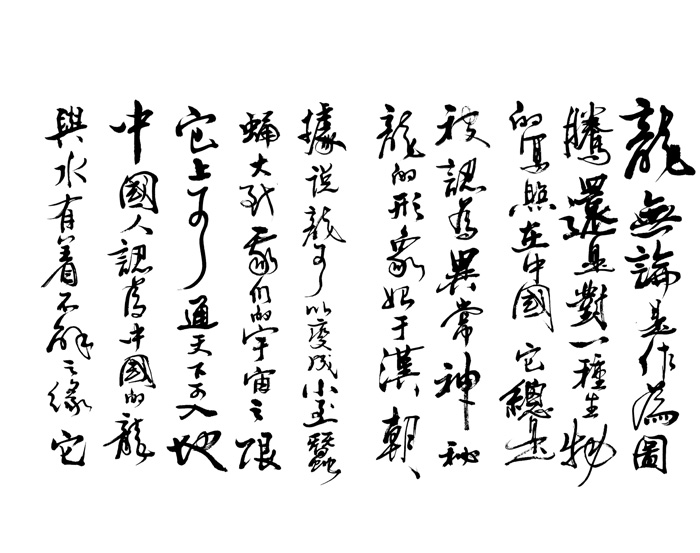 龍無論是作為圖
騰還是對一種生物
的寫照在中國它總是
被認為異常神秘
龍的形象始于漢朝
據說龍可以變成小至蠶
蛹大到我們的宇宙之限
它上可通天下可入地
中國人認為中國的龍
與水有着不解之緣它